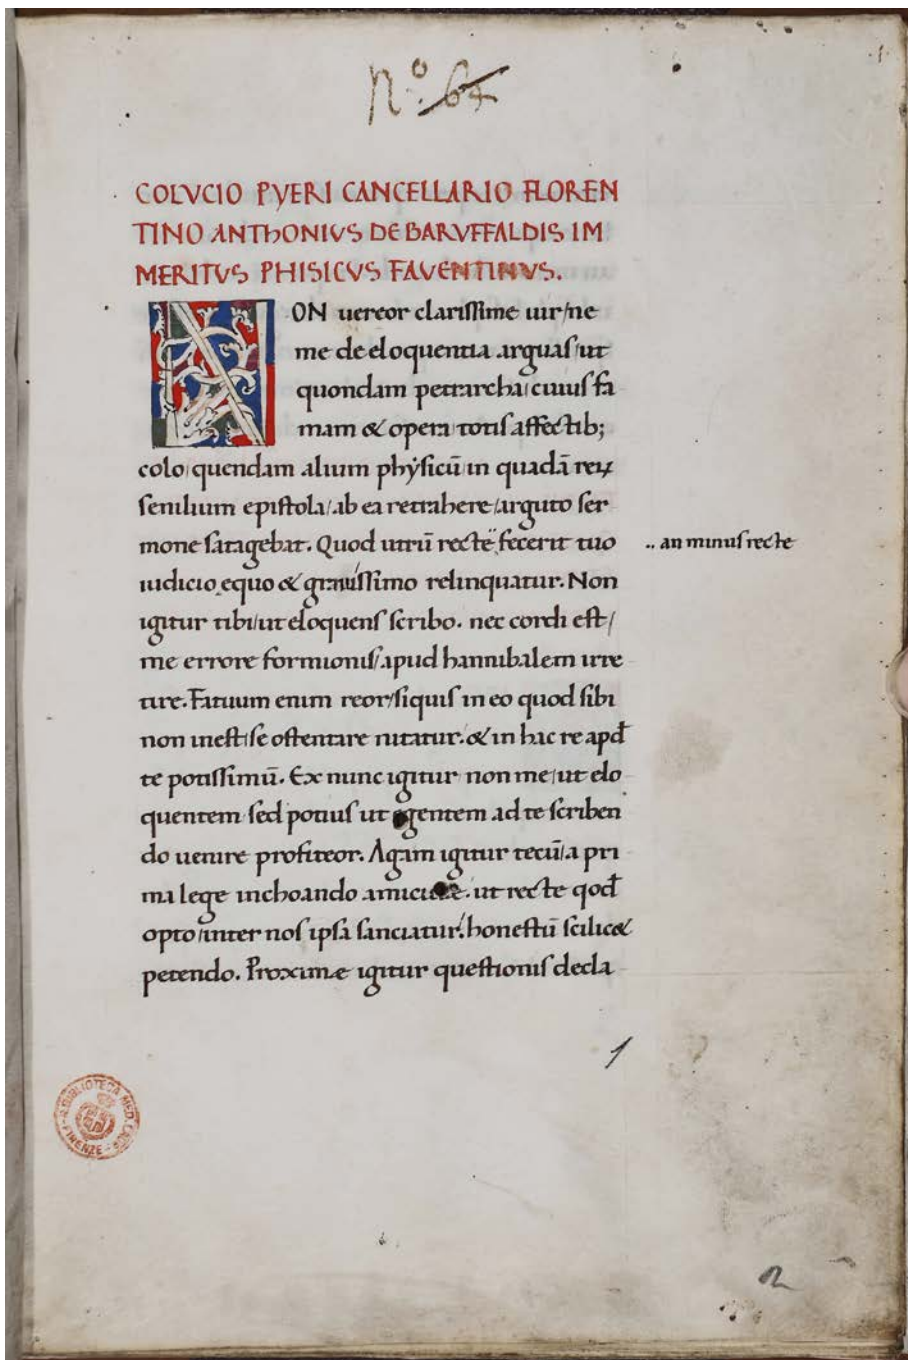 Nº. 64
COLVCIO PYERI CANCELLARIO FLOREN
TINO ANTHONIVS DE BARVFFALDIS IM
MERITVS PHISICVS FAVENTINVS.
NON uereor clarissime uir/ne
me de eloquentia arguas/ut
quondam petrarcha/cuius fa
mam & opera/totis affectib;
colo/quendam alium physicū/in quadā reꝝ
senilium epistola/ab ea retrahere/arguto ser
mone satagebat. Quod utrū recte fecerit tuo
.. an minus recte
iudicio equo & grauissimo relinquatur. Non
igitur tibi/ut eloquens scribo. nec cordi est/
me errore formionis/apud hannibalem irre
tire. Fatuum enim reor/siquis in eo quod sibi
non inest/se ostentare nitatur. & in hac re apd̄
te potissimū. Ex nunc igitur non me/ut elo
quentem sed potius ut egentem ad te scriben
do uenire profiteor. Agam igitur tecū/a pri
ma lege inchoando amicitiæ. ut recte qod̄
opto/inter nos ipsa sanciatur. honestū scilic&
petendo. Proximæ igitur questionis decla
1
R. BIBLIOTECA MED. LAUR.
FIRENZE